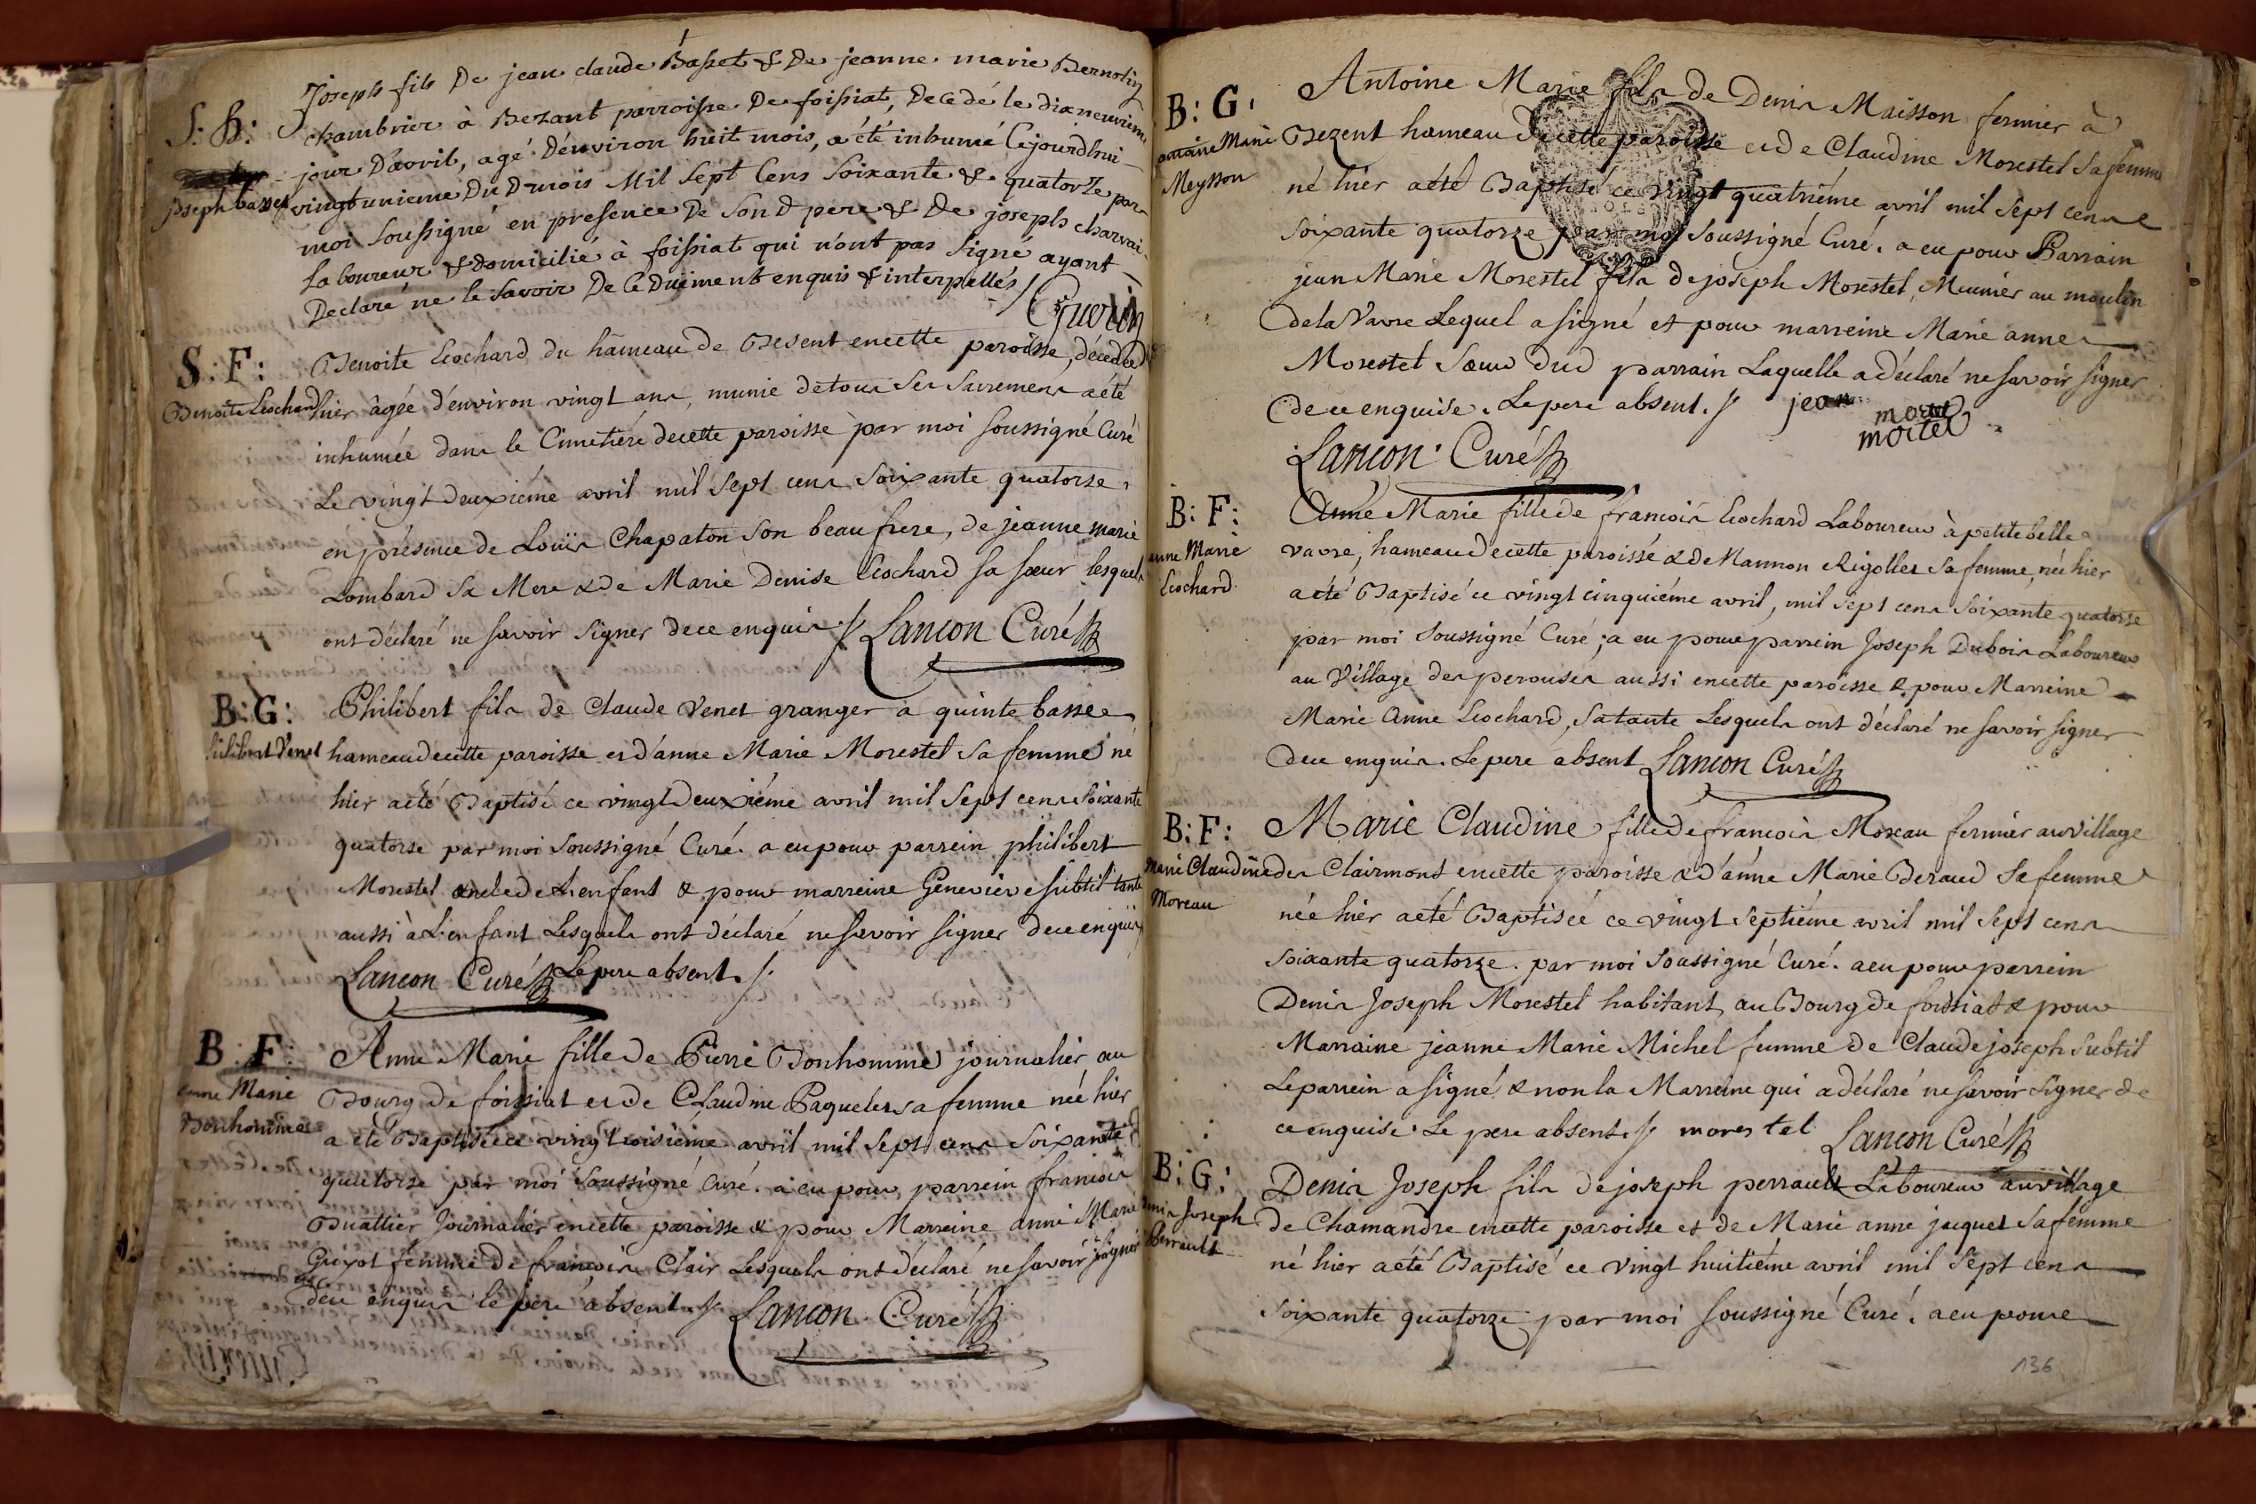 S: H:
Joseph basset
Joseph fils De jean claude Basset & De jeanne marie Bernolin
chambrier à Bezant parroisse De foissiat, Decedé le dixneuvieme
jour D'avril, agé D'environ huit mois, a été inhumé Cejourd'hui
vingtunieme Du D mois Mil Sept Cens Soixante & quatorze par
moi Soussigné en presence De Son D pere & De joseph charvai
Laboureur & domicilié à foissiat qui n'ont pas Signé ayant
Declaré ne le Savoir De Ce Duement enquis & interpellés /
Guerin
S: F:
Benoite Cochard
Benoite Cochard du hameau de Besent en cette paroisse, décedée
hier âgée d'environ vingt ans, munie de tous Ses Sacremens a été
inhumée dans le Cimetiére de cette paroisse par moi Soussigné Curé
Le vingt deuxiéme avril mil Sept cens Soixante quatorse,
en présence de Louïs Chapaton Son beau frere, de jeanne marie
Lombard Sa Mere & de Marie Denise Cochard Sa Soeur lesquels
ont déclaré ne Savoir Signer de ce enquis ./. Lançon Curé
B: G:
Philibert Venet
Philibert fils de Claude Venet granger a quinte basse
hameau de cette paroisse et d'anne Marie Morestel Sa femme né
hier a été Baptisé ce vingt Deuxiéme avril mil Sept cens Soixante
quatorse par moi Soussigné Curé. a eu pour parrein philibert
Morestel oncle de L'enfant & pour marreine Geneviéve Subtil tante
aussi à L'enfant Lesquels ont déclaré ne Savoir Signer de ce enquis
Lançon Curé Le pere absent ./.
B: F:
anne Marie
Bonhomme
Anne Marie fille de Pierre Bonhomme journalier au
Bourg de foissiat et de Claudine Paquelet Sa femme née hier
a été Baptisée ce vingt troisiéme avril mil Sept cens Soixante
quatorze par moi Soussigné Curé. a eu pour parrein françois
Buattier Journalier en cette paroisse & pour Marreine anne Marie
Guyot femme de françois Clair Lesquels ont déclaré ne Savoir Signer
de ce enquis le pere absent ./. Lançon Curé
B: G:
antoine Marie
Meysson
Antoine Marie fils de Denis Maisson fermier à
Bezent hameau de cette paroisse et de Claudine Morestel Sa femme
né hier a été Baptisé ce vingt quatriéme avril mil Sept cens
Soixante quatorze par moi Soussigné Curé. a eu pour Parrain
jean Marie Morestel fils de joseph Morestel, Meunier au moulin
de la Vavre Lequel a signé et pour marreine Marie anne
Morestel Soeur dud parrain Laquelle a déclaré ne Savoir Signer
de ce enquise. Le pere absent ./. jean
Lançon Curé
B: F:
anne Marie
Cochard
Anne Marie fille de françois Cochard Laboureur à petite belle
vavre, hameau de cette paroisse & de Mannon Rigollet Sa femme, née hier
a été Baptisé ce vingt cinquiéme avril, mil Sept cens Soixante quatorse
par moi Soussigné Curé; a eu pour parrein Joseph Dubois Laboureur
au Village des perouses aussi en cette paroisse & pour Marreine
Marie Anne Cochard, Sa tante Lesquels ont déclaré ne Savoir Signer
de ce enquis. Le pere absent Lançon Curé
B: F:
Marie Claudine
Moreau
Marie Claudine fille de françois Moreau fermier au village
des Clairmont en cette paroisse & d'anne Marie Beraud Sa femme
née hier a été Baptiséé ce vingt Septiéme avril mil Sept cens
Soixante quatorze. par moi Soussigné Curé. a eu pour parrein
Denis Joseph Morestel habitant au Bourg de foissiat & pour
Marraine jeanne Marie Michel femme de Claude joseph Subtil
Le parrein a signé & non la Marreine qui a déclaré ne Savoir Signer de
ce enquise. Le pere absent ./. morestel Lançon Curé
B: G:
Denis Joseph
Perrault
Denis Joseph fils de joseph perrault Laboureur au village
de Chamandre en cette paroisse et de Marie anne jaquet Sa femme
né hier a été Baptisé ce vingt huitiéme avril mil Sept cens
Soixante quatorze par moi Soussigné Curé. a eu pour
136